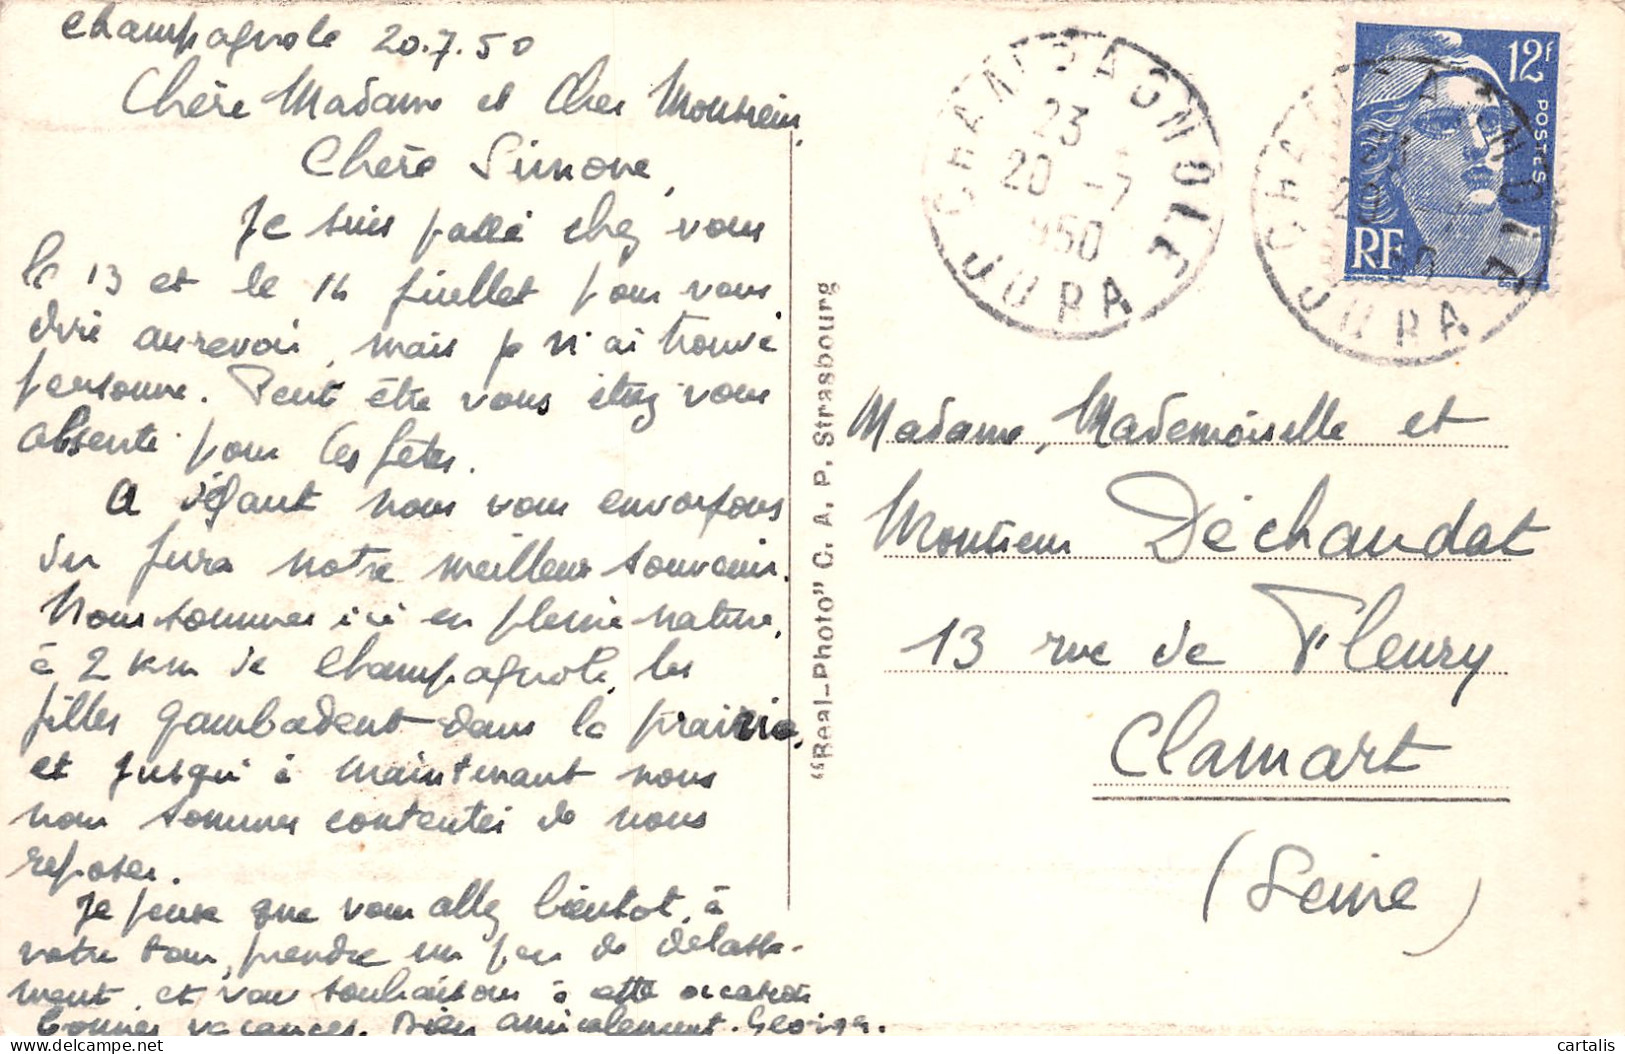 Champagnole 20.7.50
Chère Madame et Cher Monsieur,
Chère Simone,
Je suis passé chez vous
le 13 et le 14 juillet pour vous
dire aurevoir, mais je n'ai trouvé
personne. Peut être vous étiez vous
absenté pour les fêtes.
A défaut nous vous envoyons
du Jura notre meilleur souvenir.
Nous sommes ici en pleine nature,
à 2 km de Champagnole, les
filles gambadent dans la prairie,
et jusqu'à maintenant nous
nous sommes contentés de nous
reposer.
Je pense que vous allez bientot, à
votre tour, prendre un peu de délasse-
ment, et vous souhaitons à cette occasion
bonnes vacances. Bien amicalement.
"Real-Photo" C. A. P. Strasbourg
CHAMPAGNOLE
23
20 -7
1950
JURA
12F
POSTES
RF
CHAMPAGNOLE
JURA
Madame, Mademoiselle et
Monsieur Déchaudat
13 rue de Fleury
Clamart
(Seine)
cartalis